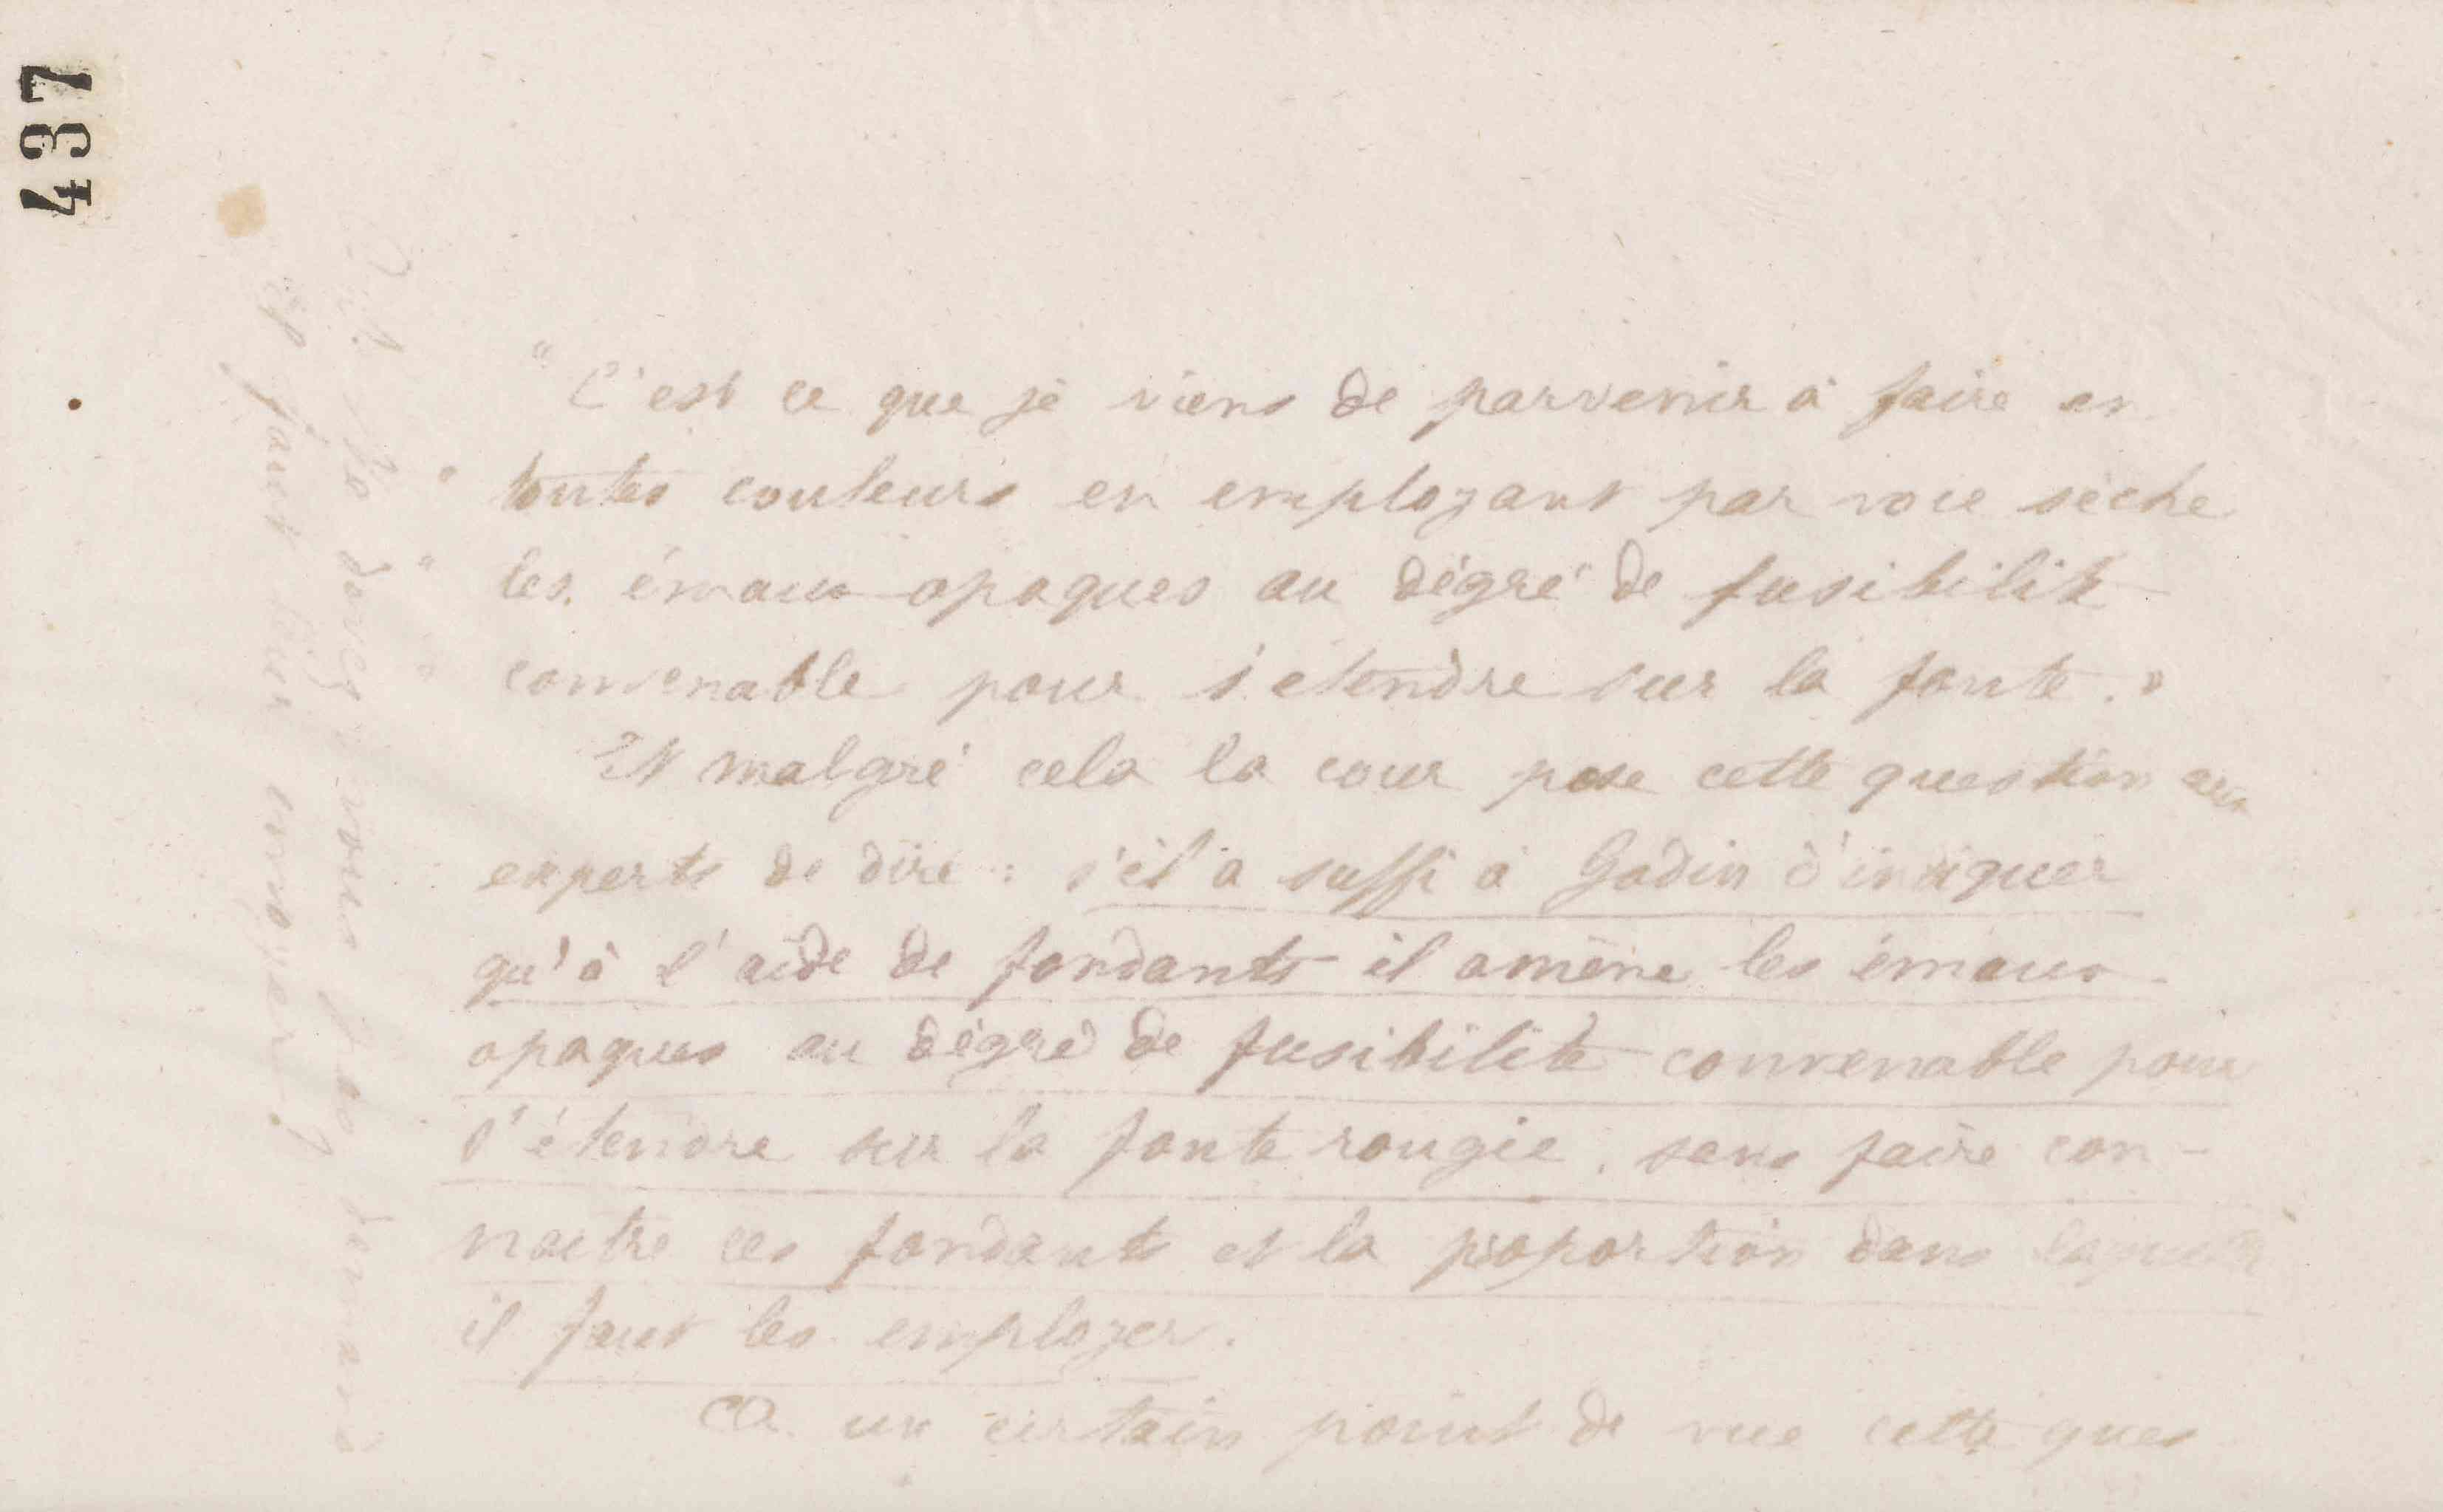 437
"C'est ce que je viens de parvenir à faire en
" toutes couleurs en employant par voie sèche
" les émaux opaques au dégré de fusibilité
" convenable pour s'étendre sur la fonte."
Et malgré cela la cour pose cette question aux
experts de dire : s'il a suffi à Godin d'indiquer
qu'à l'aide de fondants il amène les émaux
opaques au dégré de fusibilité convenable pour
s'étendre sur la fonte rougie, sans faire con-
naitre ces fondants et la proportion dans laquelle
il faut les employer.
A un certain point de vue cette ques
vous pas
faut envoyer